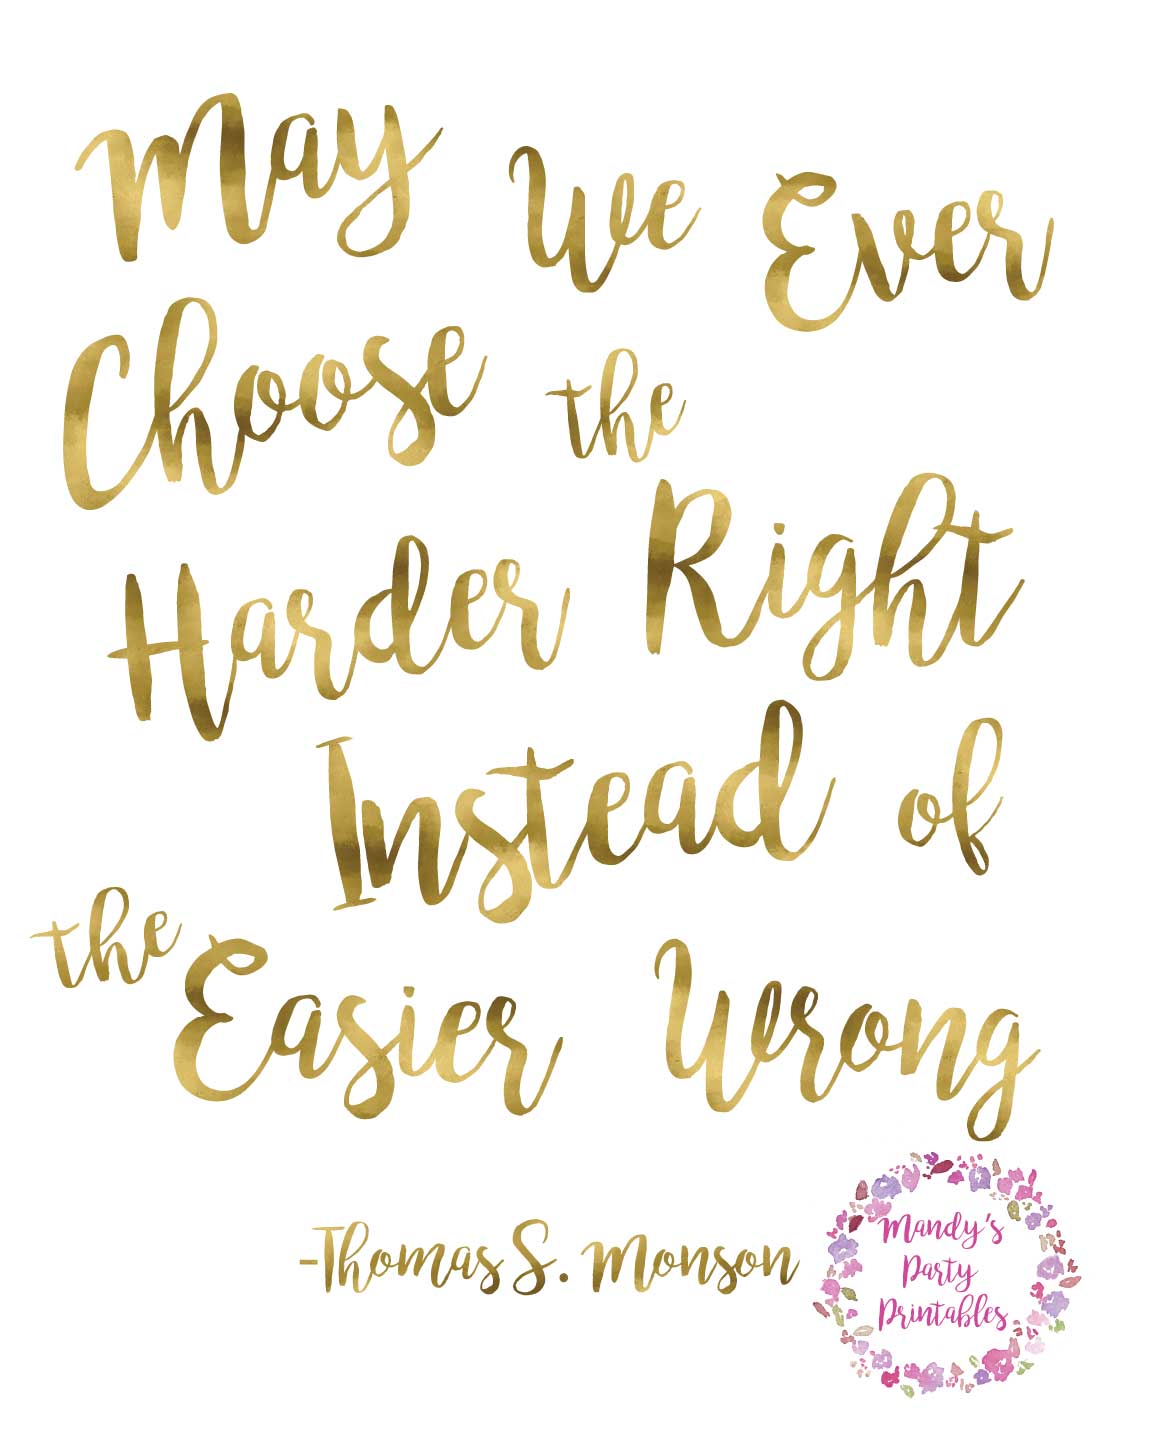 May We Ever
Choose the
Harder Right
Instead of
the Easier Wrong
-Thomas S. Monson
Mandy's
Party
Printables